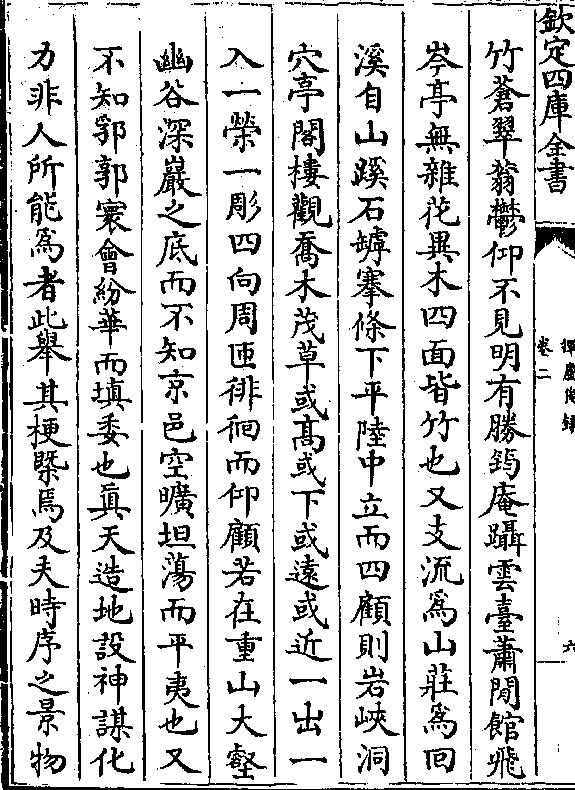 欽定四庫全書
揮麈後録
卷二
六
竹蒼翠蓊鬱仰不見明有勝筠庵躡雲臺蕭閒館飛
岑亭無雜花異木四面皆竹也又支流爲山莊爲回
溪自山蹊石罅搴條下平陸中立而四顧則岩峽洞
穴亭閣樓觀喬木茂草或髙或下或遠或近一出一
入一榮一彫四向周匝徘徊而仰顧若在重山大壑
幽谷深巖之底而不知京邑空曠坦蕩而平夷也又
不知郛郭寰會紛華而填委也眞天造地設神謀化
力非人所能爲者此舉其梗槩焉及夫時序之景物